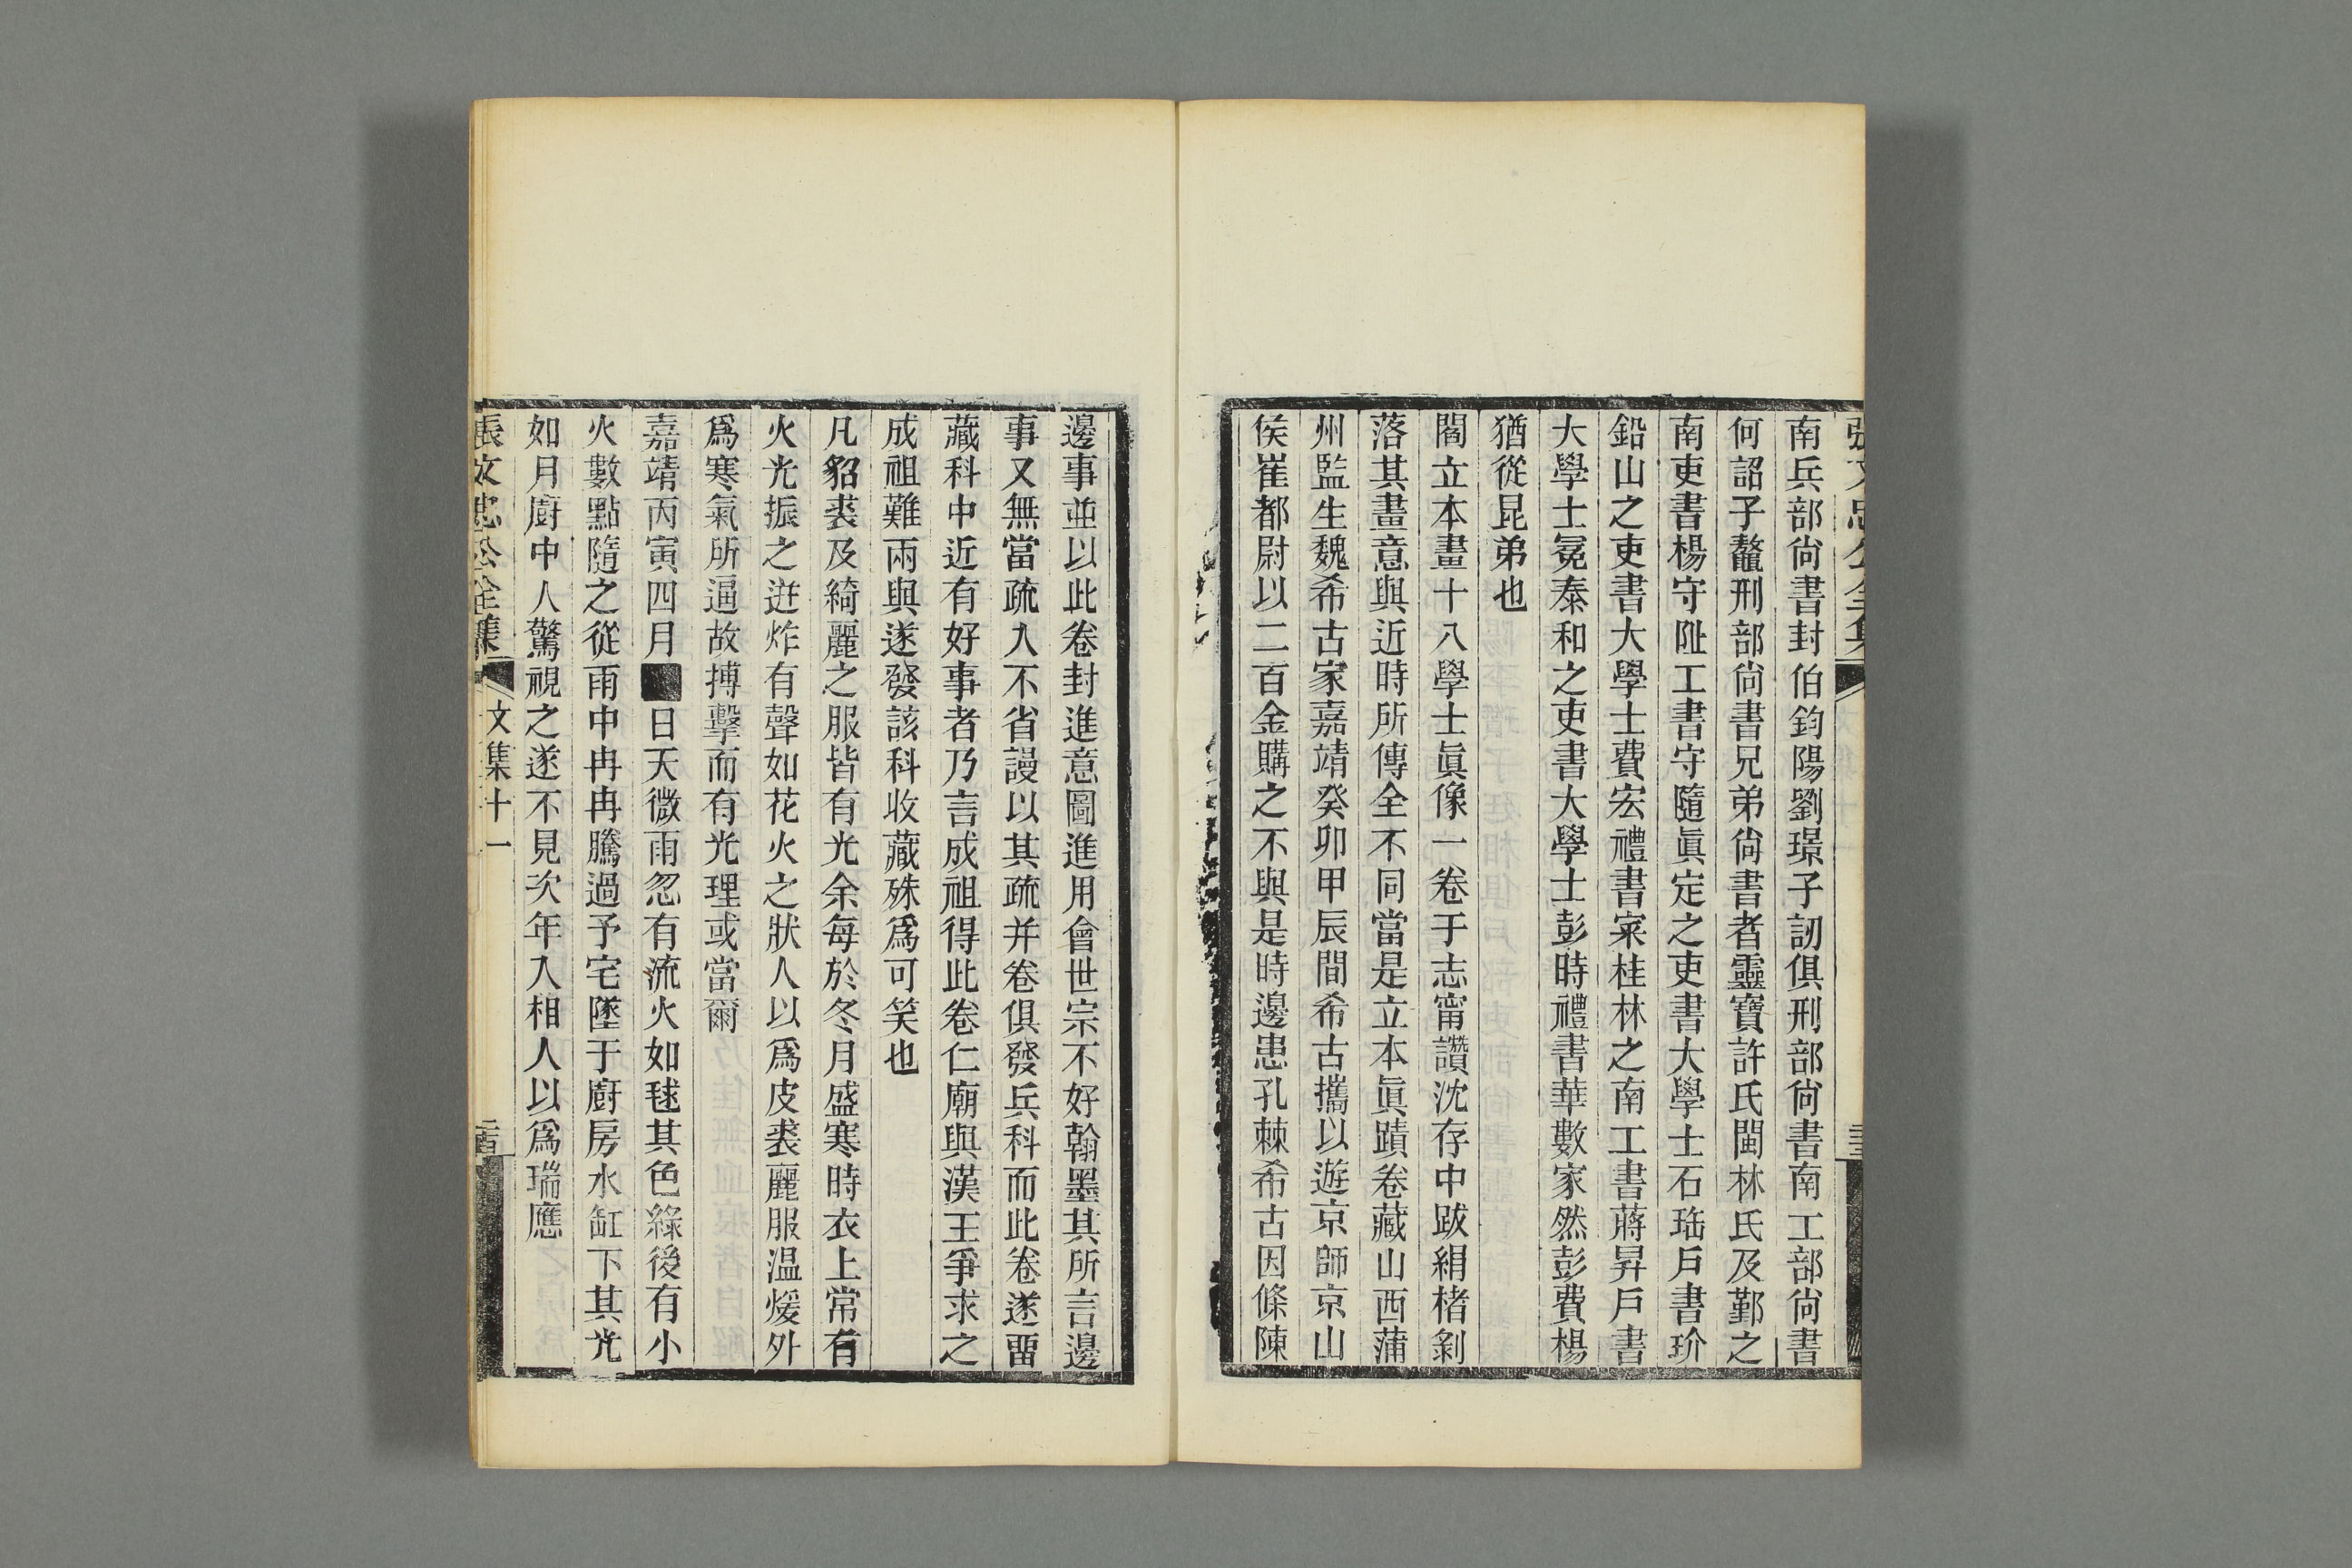 南兵部尙書封伯鈞陽劉璟子訒俱刑部尙書南工部尙書
何詔子鰲刑部尙書兄弟尙書者靈寶許氏閩林氏及鄞之
南吏書楊守阯工書守隨眞定之吏書大學士石珤戶書玠
鉛山之吏書大學士費宏禮書寀桂林之南工書蔣昇戶書
大學士冕泰和之吏書大學士彭時禮書華數家然彭費楊
猶從昆弟也
閻立本畫十八學士眞像一卷于志甯讚沈存中跋絹楮剝
落其畫意與近時所傳全不同當是立本眞蹟卷藏山西蒲
州監生魏希古家嘉靖癸卯甲辰間希古攜以遊京師京山
侯崔都尉以二百金購之不與是時邊患孔棘希古因條陳
邊事並以此卷封進意圖進用會世宗不好翰墨其所言邊
事又無當疏入不省謾以其疏并卷俱發兵科而此卷遂畱
藏科中近有好事者乃言成祖得此卷仁廟與漢王爭求之
成祖難兩與遂發該科收藏殊爲可笑也
凡貂裘及綺麗之服皆有光余每於冬月盛寒時衣上常有
火光振之迸炸有聲如花火之狀人以爲皮裘麗服温煖外
爲寒氣所逼故搏擊而有光理或當爾
嘉靖丙寅四月日天微雨忽有流火如毬其色綠後有小
火數點隨之從雨中冉冉騰過予宅墜于廚房水缸下其光
如月廚中人驚視之遂不見次年入相人以爲瑞應
張文忠公全集 文集十一